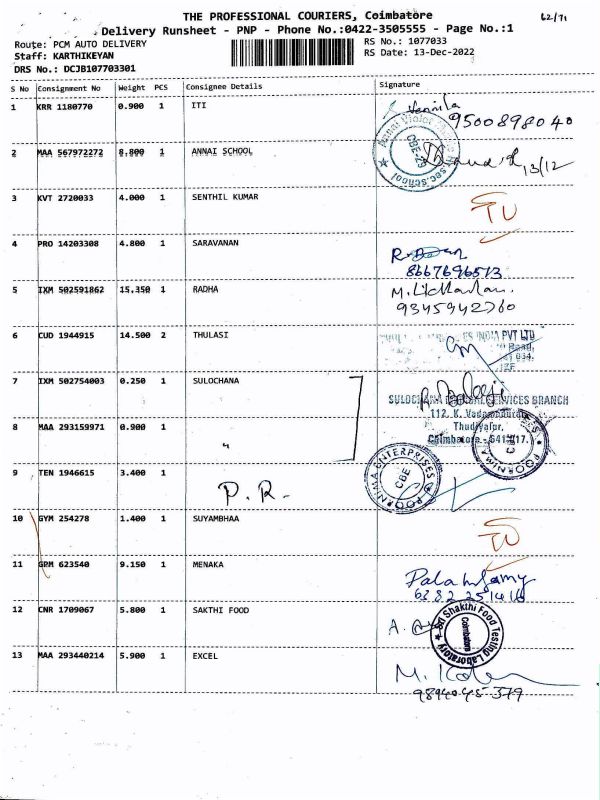 THE PROFESSIONAL COURIERS, Coimbatore
62/71
Delivery Runsheet - PNP - Phone No.:0422-3505555 - Page No.:1
Route: PCM AUTO DELIVERY
RS No.: 1077033
Staff: KARTHIKEYAN
RS Date: 13-Dec-2022
DRS No.: DCJB107703301
S No Consignment No Weight PCS Consignee Details Signature
1 KRR 1180770 0.900 1 ITI
9500898040
2 MAA 567972272 8.800 1 ANNAI SCHOOL
13/12
3 KVT 2720033 4.000 1 SENTHIL KUMAR
4 PRO 14203308 4.800 1 SARAVANAN
8667696513
5 IXM 502591862 15.350 1 RADHA
9345942760
6 CUD 1944915 14.500 2 THULASI
INDIA PVT LTD
7 IXM 502754003 0.250 1 SULOCHANA
SERVICES BRANCH
112, K. Vadamadurai
8 MAA 293159971 0.900 1 "
Thudiyalur,
Coimbatore - 641017.
POORNIMA ENTERPRISES
CBE
9 TEN 1946615 3.400 1
P.R.
10 GYM 254278 1.400 1 SUYAMBHAA
11 GPM 623540 9.150 1 MENAKA
12 CNR 1709067 5.800 1 SAKTHI FOOD
Sri Shakthi Food Testing Laboratory
Coimbatore
13 MAA 293440214 5.900 1 EXCEL
9894045379